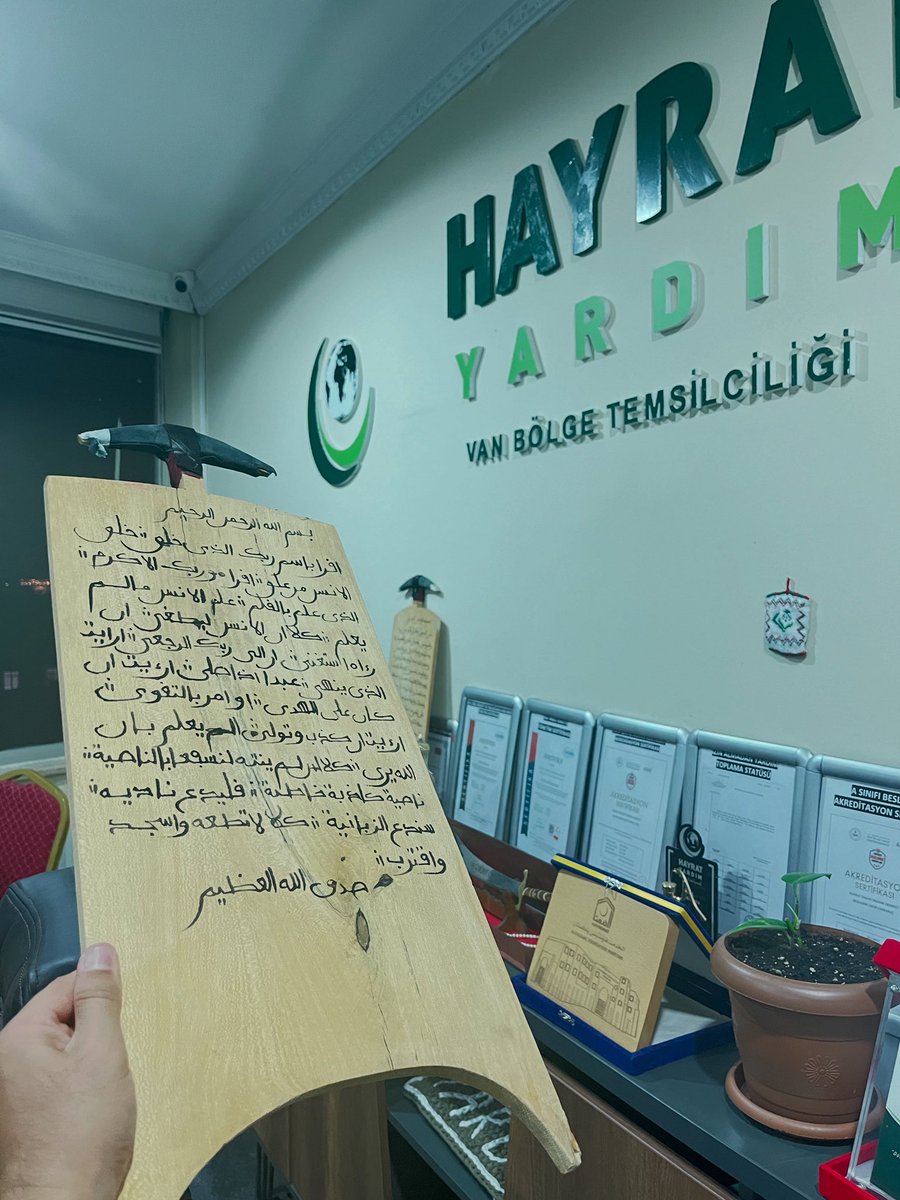 HAYRAT
YARDIM
VAN BÖLGE TEMSİLCİLİĞİ
بسم الله الرحمن الرحيم
اقرا باسم ربك الذى خلق خلق
الانسن من علق اقرا وربك الاكرم
الذى علم بالقلم علم الانسن مالم
يعلم كلا ان الانسن ليطغى ان
راه استغنى ان الى ربك الرجعى اريت
الذى ينهى عبدا اذا صلى اريت ان
كان على الهدى او امر بالتقوى
اريت ان كذب وتولى الم يعلم بان
الله يرى كلا لئن لم ينته لنسفعا بالناصية
ناصية كاذبة خاطئة فليدع ناديه
سندع الزبانية كلا لا تطعه واسجد
واقترب
صدق الله العظيم
TOPLAMA STATÜSÜ
A SINIFI
AKREDİTASYON
AKREDİTASYON
SERTİFİKASI
AKREDİTASYON
SERTİFİKASI
HAYRAT
YARDIM